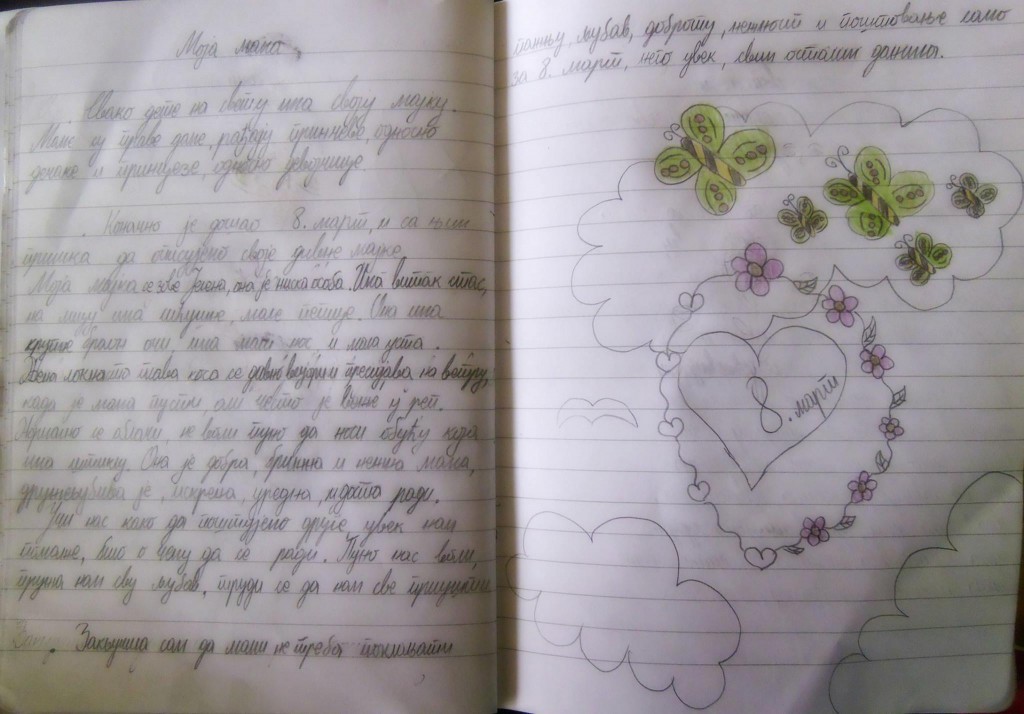 Моја мама
Свако дете на свету има своју мајку.
Маме су праве даме, рађају принчеве, односно
дечаке и принцезе, односно девојчице.
. Коначно је дошао 8. март, и са њим
прилика да описујемо своје дивне мајке.
Моја мајка се зове Јелена, она је ниска особа. Има витак стас,
на лицу има пегице. Она има
крупне браон очи има мали нос и мала уста.
коса се дивно вијори и пресијава на ветру,
када је мама пусти, али често је веже у реп.
Нормално се облачи, не воли пуно да носи обућу која
има штиклу. Она је добра, брижна и нежна мама,
дружељубива је, искрена, уредна, и доста ради.
Учи нас како да поштујемо друге, увек нам
помаже, било о чему да се ради. Пуно нас воли,
пружа нам сву љубав, труди се да нам све приушти.
Закључила сам да мами не треба поклањати
пажњу, љубав, доброту, нежност и поштовање само
за 8. март, него увек, свим осталим данима.
8. март